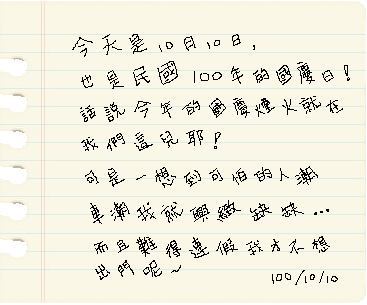 今天是10月10日,
也是民國100年的國慶日!
話說今年的國慶煙火就在
我們這兒耶!
可是一想到可怕的人潮
車潮我就興緻缺缺...
而且難得連假我才不想
出門呢~
100/10/10